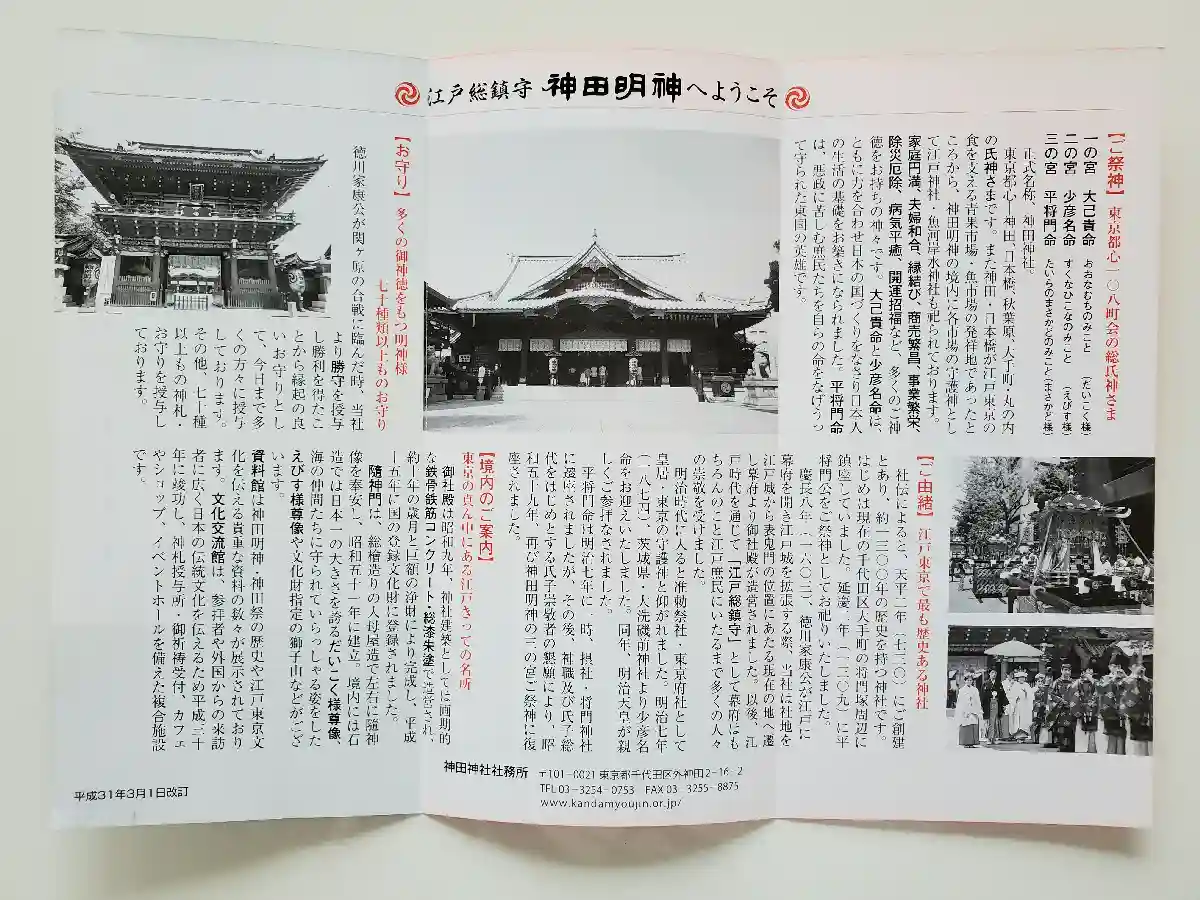 江戸総鎮守 神田明神へようこそ
【ご祭神】 東京都心一〇八町会の総氏神さま
一の宮 大己貴命 おおなむちのみこと (だいこく様)
二の宮 少彦名命 すくなひこなのみこと (えびす様)
三の宮 平将門命 たいらのまさかどのみこと(まさかど様)
正式名称、神田神社。
東京都心―神田、日本橋、秋葉原、大手町・丸の内
の氏神さまです。また神田・日本橋が江戸東京の
食を支える青果市場・魚市場の発祥地であったと
ころから、神田明神の境内に各市場の守護神とし
て江戸神社・魚河岸水神社も祀られております。
家庭円満、夫婦和合、縁結び、商売繁昌、事業繁栄、
除災厄除、病気平癒、開運招福など、多くのご神
徳をお持ちの神々です。大己貴命と少彦名命は、
ともに力を合わせ日本の国づくりをなさり日本人
の生活の基礎をお築きになられました。平将門命
は、悪政に苦しむ庶民たちを自らの命をなげうっ
て守られた東国の英雄です。
【お守り】 多くの御神徳をもつ明神様
七十種類以上ものお守り
徳川家康公が関ヶ原の合戦に臨んだ時、当社
より勝守を授与
し勝利を得たこ
とから縁起の良
いお守りとし
て、今日まで多
くの方々に授与
しております。
その他、七十種
以上もの神札・
お守りを授与し
ております。
【ご由緒】 江戸東京で最も歴史ある神社
社伝によると、天平二年(七三〇)にご創建
とあり、約一三〇〇年の歴史を持つ神社です。
はじめは現在の千代田区大手町の将門塚周辺に
鎮座していました。延慶二年(一三〇九)に平
将門公をご祭神としてお祀りいたしました。
慶長八年(一六〇三)、徳川家康公が江戸に
幕府を開き江戸城を拡張する際、当社は社地を
江戸城から表鬼門の位置にあたる現在の地へ遷
し幕府より御社殿が造営されました。以後、江
戸時代を通じて「江戸総鎮守」として幕府はも
ちろんのこと江戸庶民にいたるまで多くの人々
の崇敬を受けました。
明治時代に入ると准勅祭社・東京府社として
皇居・東京の守護神と仰がれました。明治七年
(一八七四)、茨城県・大洗磯前神社より少彦名
命をお迎えいたしました。同年、明治天皇が親
しくご参拝なされました。
平将門命は明治七年に一時、摂社・将門神社
に遷座されましたが、その後、神職及び氏子総
代をはじめとする氏子崇敬者の懇願により、昭
和五十九年、再び神田明神の三の宮ご祭神に復
座されました。
【境内のご案内】
東京の真ん中にある江戸きっての名所
御社殿は昭和九年、神社建築としては画期的
な鉄骨鉄筋コンクリート・総漆朱塗で造営され、
約十年の歳月と巨額の浄財により完成し、平成
十五年に国の登録文化財に登録されました。
随神門は、総檜造りの入母屋造で左右に随神
像を奉安し、昭和五十一年に建立。境内には石
造では日本一の大きさを誇るだいこく様尊像、
海の仲間たちに守られていらっしゃる姿をした
えびす様尊像や文化財指定の獅子山などがござ
います。
資料館は神田明神・神田祭の歴史や江戸東京文
化を伝える貴重な資料の数々が展示されており
ます。文化交流館は、参拝者や外国からの来訪
者に広く日本の伝統文化を伝えるため平成三十
年に竣功し、神札授与所・御祈祷受付、カフェ
やショップ、イベントホールを備えた複合施設
です。
神田神社社務所 〒101-0021 東京都千代田区外神田2-16-2
TEL 03-3254-0753 FAX 03-3255-8875
www.kandamyoujin.or.jp/
平成31年3月1日改訂